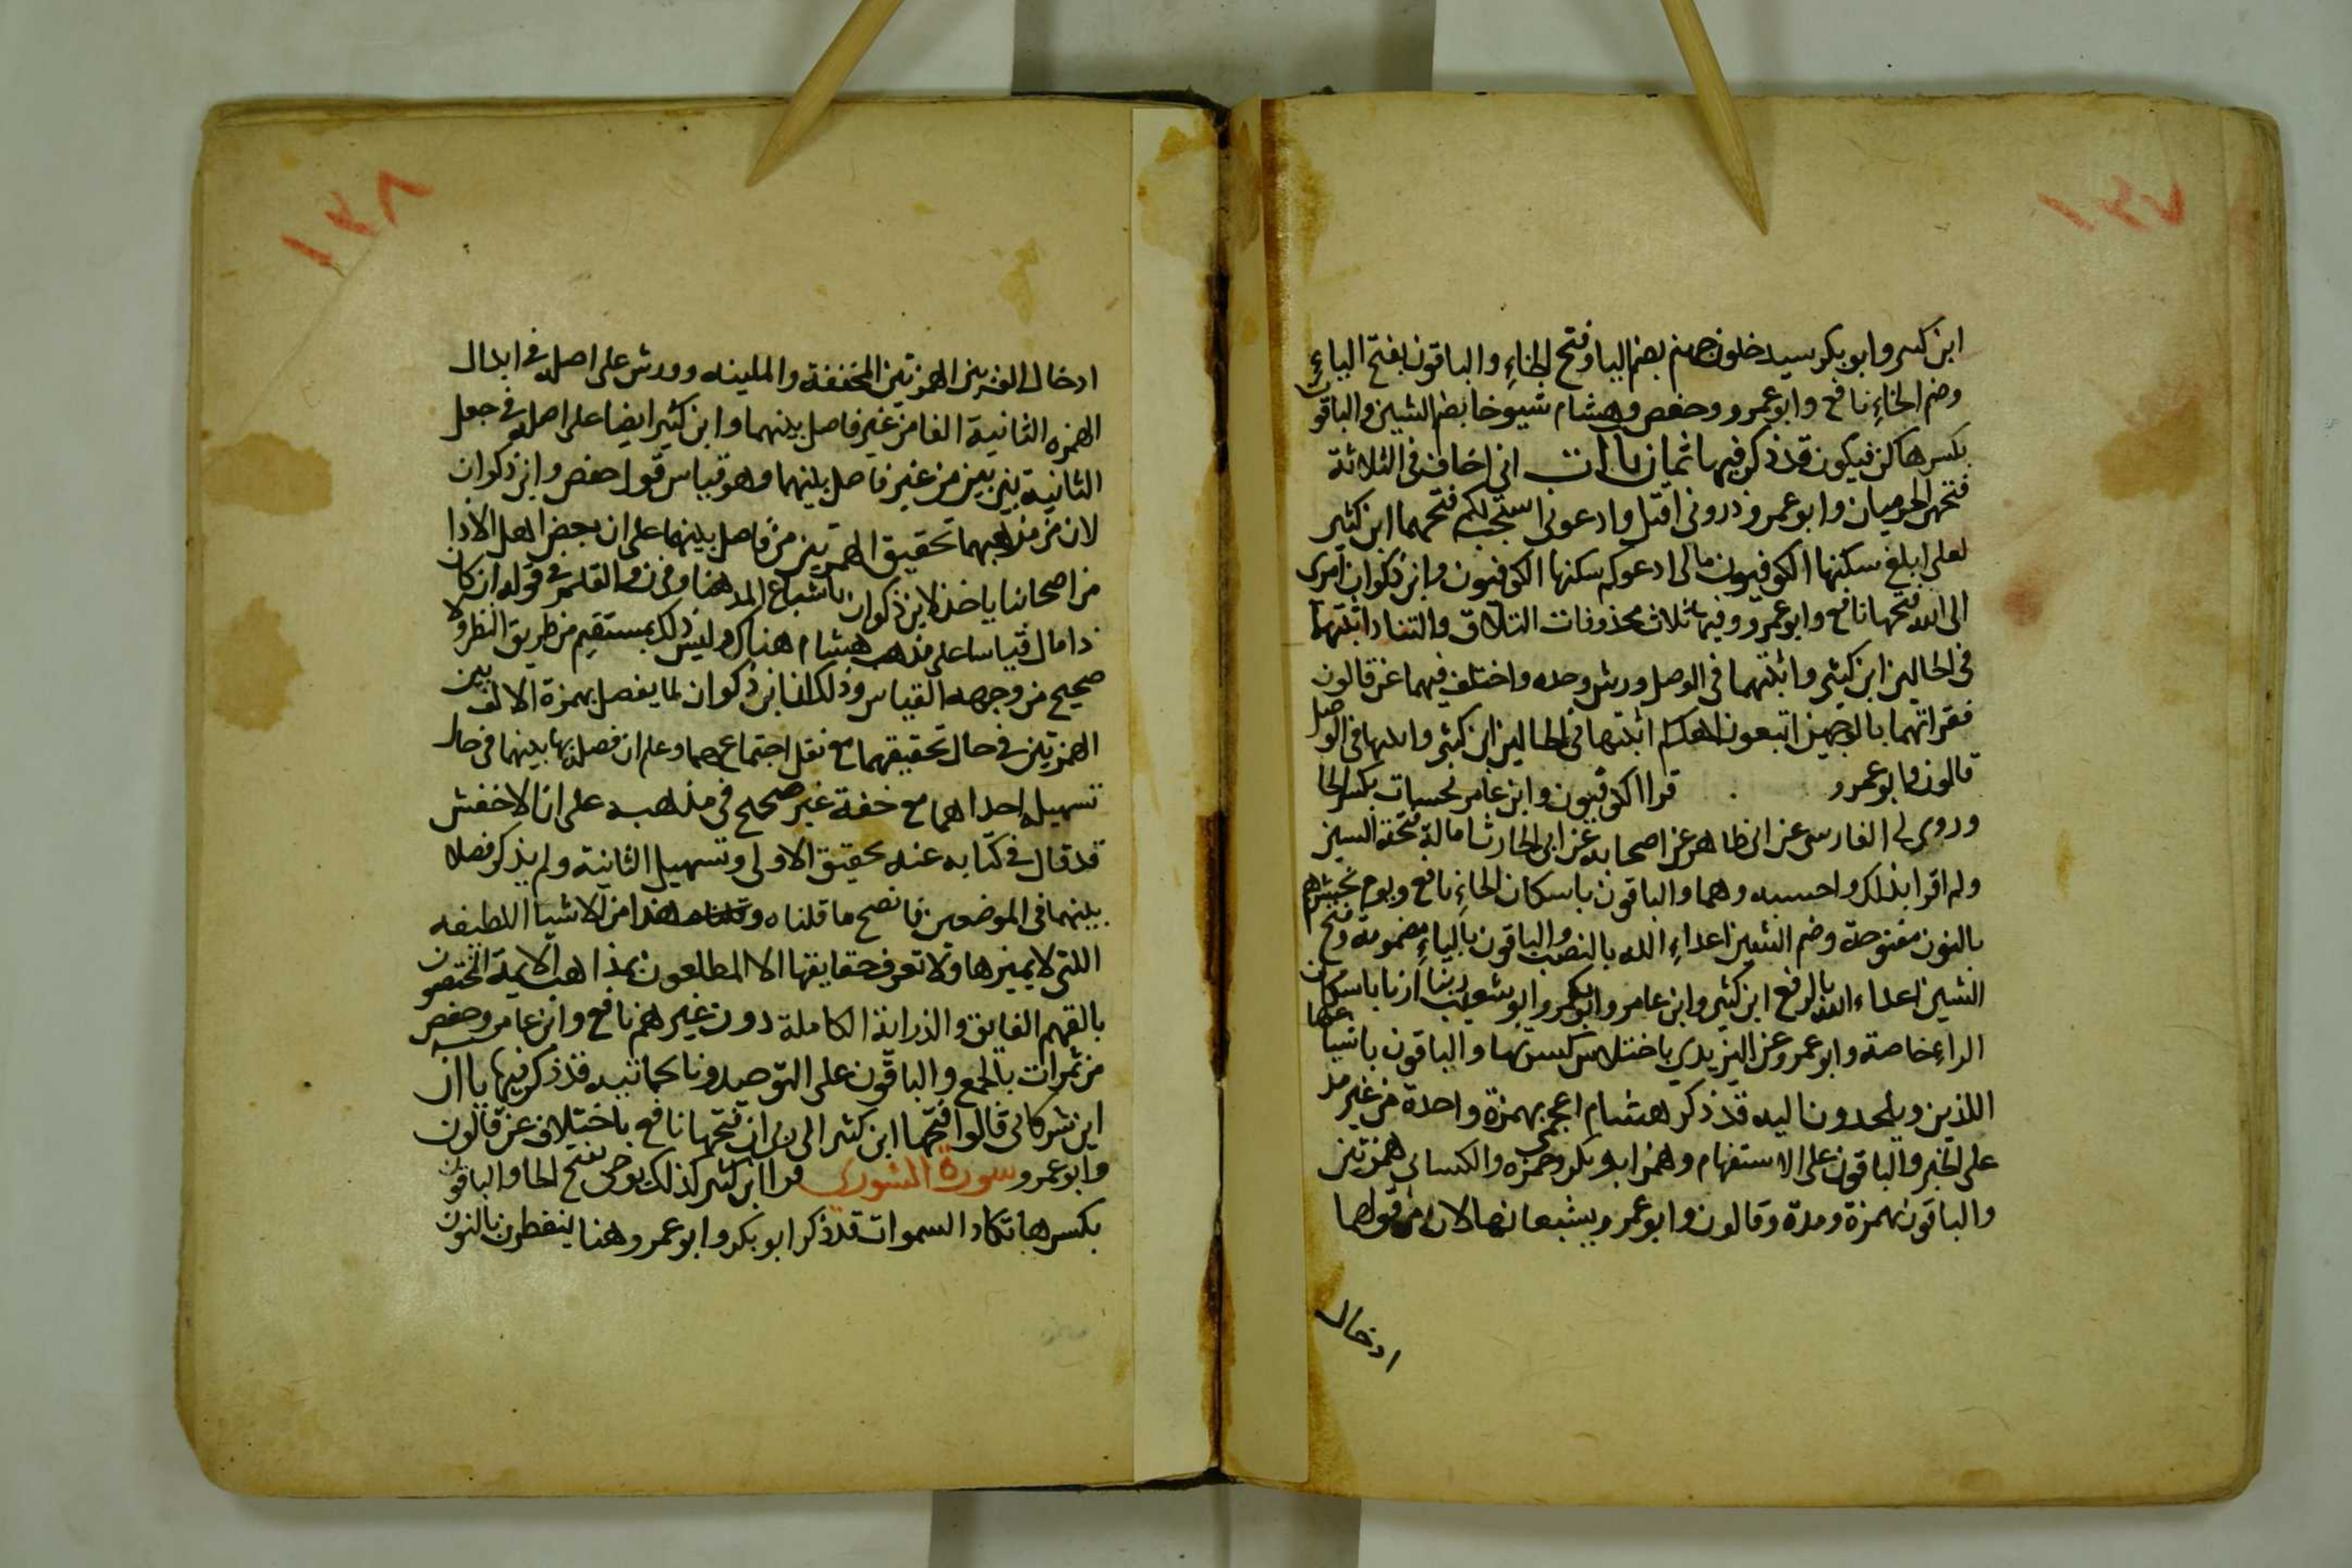 ١٣٧
ابن كثير وابو بكر سيدخلون جهنم بضم اليا وفتح الخاءِ والباقون بفتح الياءِ
وضم الخاءِ نافع وابو عمرو وحفص وهشام شيوخا بضم الشين والباقون
بكسرها كن فيكون قد ذكر فيها ثمان ياات انى اخاف فى الثلاثة
فتحهن الحرميان وابو عمرو ذرونى اقتل وادعونى استجب لكم فتحهما ابن كثير
لعلى ابلغ سكنها الكوفيون مالى ادعوكم سكنها الكوفيون وابن ذكوان امرى
الى الله فتحها نافع وابو عمرو وفيها ثلاث محذوفات التلاق والتناد اثبتهما
فى الحالين ابن كثير واثبتهما فى الوصل ورش وحده واختلف فيهما عن قالون
فقراتهما بالوجهين اتبعون اهدكم اثبتها فى الحالين ابن كثير واثبتها فى الوصل
قالون وابو عمرو قرا الكوفيون وابن عامر نحسات بكسر الحا
وروى لى الفارسى عن ابى طاهر عن اصحابه عن ابى الحارث امالة فتحة السين
ولم اقرا بذلك واحسبه وهما والباقون باسكان الحاءِ نافع ويوم نحشرهم
بالنون مفتوحة وضم الشين اعداءِ الله بالنصب والباقون بالياءِ مضمومة وفتح
الشين اعداء الله بالرفع ابن كثير وابن عامر وابو بكر وابو شعيب ربنا ارنا باسكان
الراءِ خاصة وابو عمرو عن اليزيدي باختلاس كسرتها والباقون باشباعها
اللذين ويلحدون اليه قد ذكر هشام اعجمى بهمزة واحدة من غير مد
على الخبر والباقون على الاستفهام وهمز ابو بكر وحمزه والكساى همزتين
والباقون بهمزة ومدة وقالون وابو عمرو يشبعانها لان من قولهما
ادخال
١٣٨
ادخال الف بين الهمزتين المخففة والملينه وورش على اصله فى ابدال
الهمزه الثانية الفا من غير فاصل بينهما وابن كثير ايضا على اصله فى جعل
الثانية بين بين من غير فاصل بينهما وهو قياس قول حفص وابن ذكوان
لان من مذهبهما تحقيق الهمزتين من فاصل بينهما على ان بعض اهل الادا
من اصحابنا ياخذ لابن ذكوان باشباع المد هنا وفى ن والقلم فى قوله ان كان
ذا مال قياسا على مذهب هشام هناك وليس ذلك بمستقيم من طريق النظر ولا
صحيح من وجهه القياس وذلك ان ابن ذكوان لما يفصل بهمزة الالف بين
الهمزتين فى حال تحقيقهما مع نقل اجتماعهما وعلم ان فصله بها بينهما فى حال
تسهيله احداهما مع خفة غير صحيح فى مذهبه على ان الاخفش
قد قال فى كتابه عنه بحقيق الاولى وتسهيل الثانية ولم يذكر فصلا
بينهما فى الموضعين فاتضح ما قلناه هذا من الاشيا اللطيفه
اللتى لا يميزها ولا تعرف حقايقها الا المطلعون بمذاهب الايمة المختصون
بالفهم الفايق والدراية الكاملة دون غيرهم نافع وابن عامر وحفص
من ثمرات بالجمع والباقون على التوحيد ونا بجانبه قد ذكر فيها ياان
اين شركاى قالوا فتحها ابن كثير الى ربى ان فتحها نافع باختلاف عن قالون
وابو عمرو سورة الشورى قرا ابن كثير كذلك يوحى بفتح الحا والباقون
بكسرها تكاد السموات قد ذكر ابو بكر وابو عمرو هنا ينفطرن بالنون